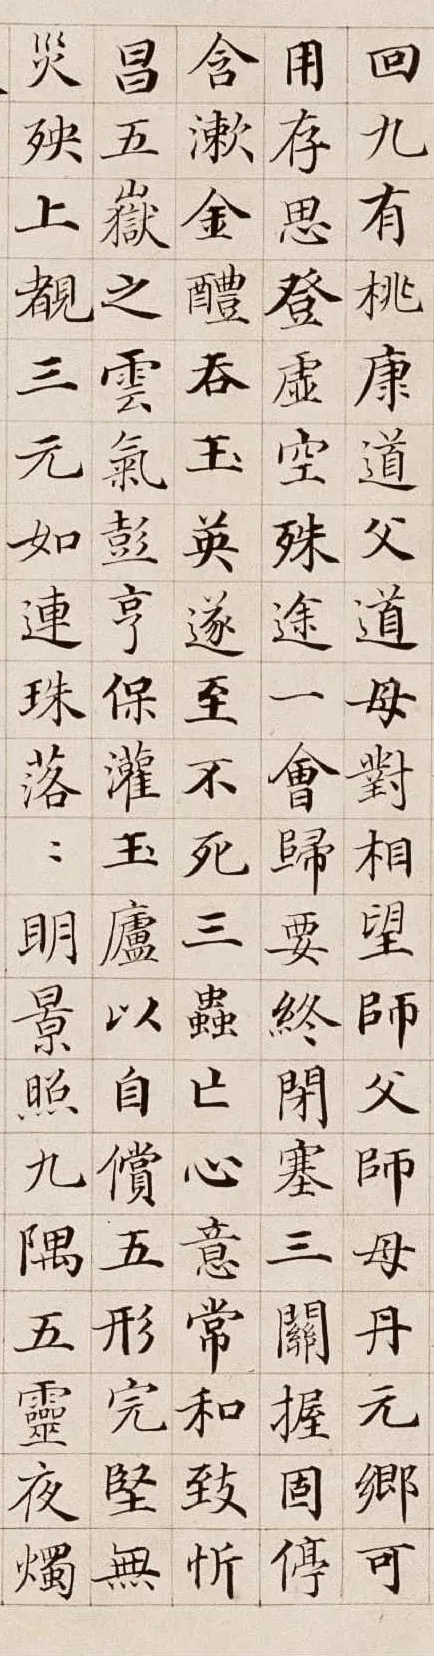 回九有桃康道父道母對相望師父師母丹元鄉可
用存思登虛空殊途一會歸要終閉塞三關握固停
含漱金醴吞玉英遂至不死三蟲亡心意常和致忻
昌五嶽之雲氣彭亨保灌玉廬以自償五形完堅無
災殃上覩三元如連珠落：明景照九隅五靈夜燭